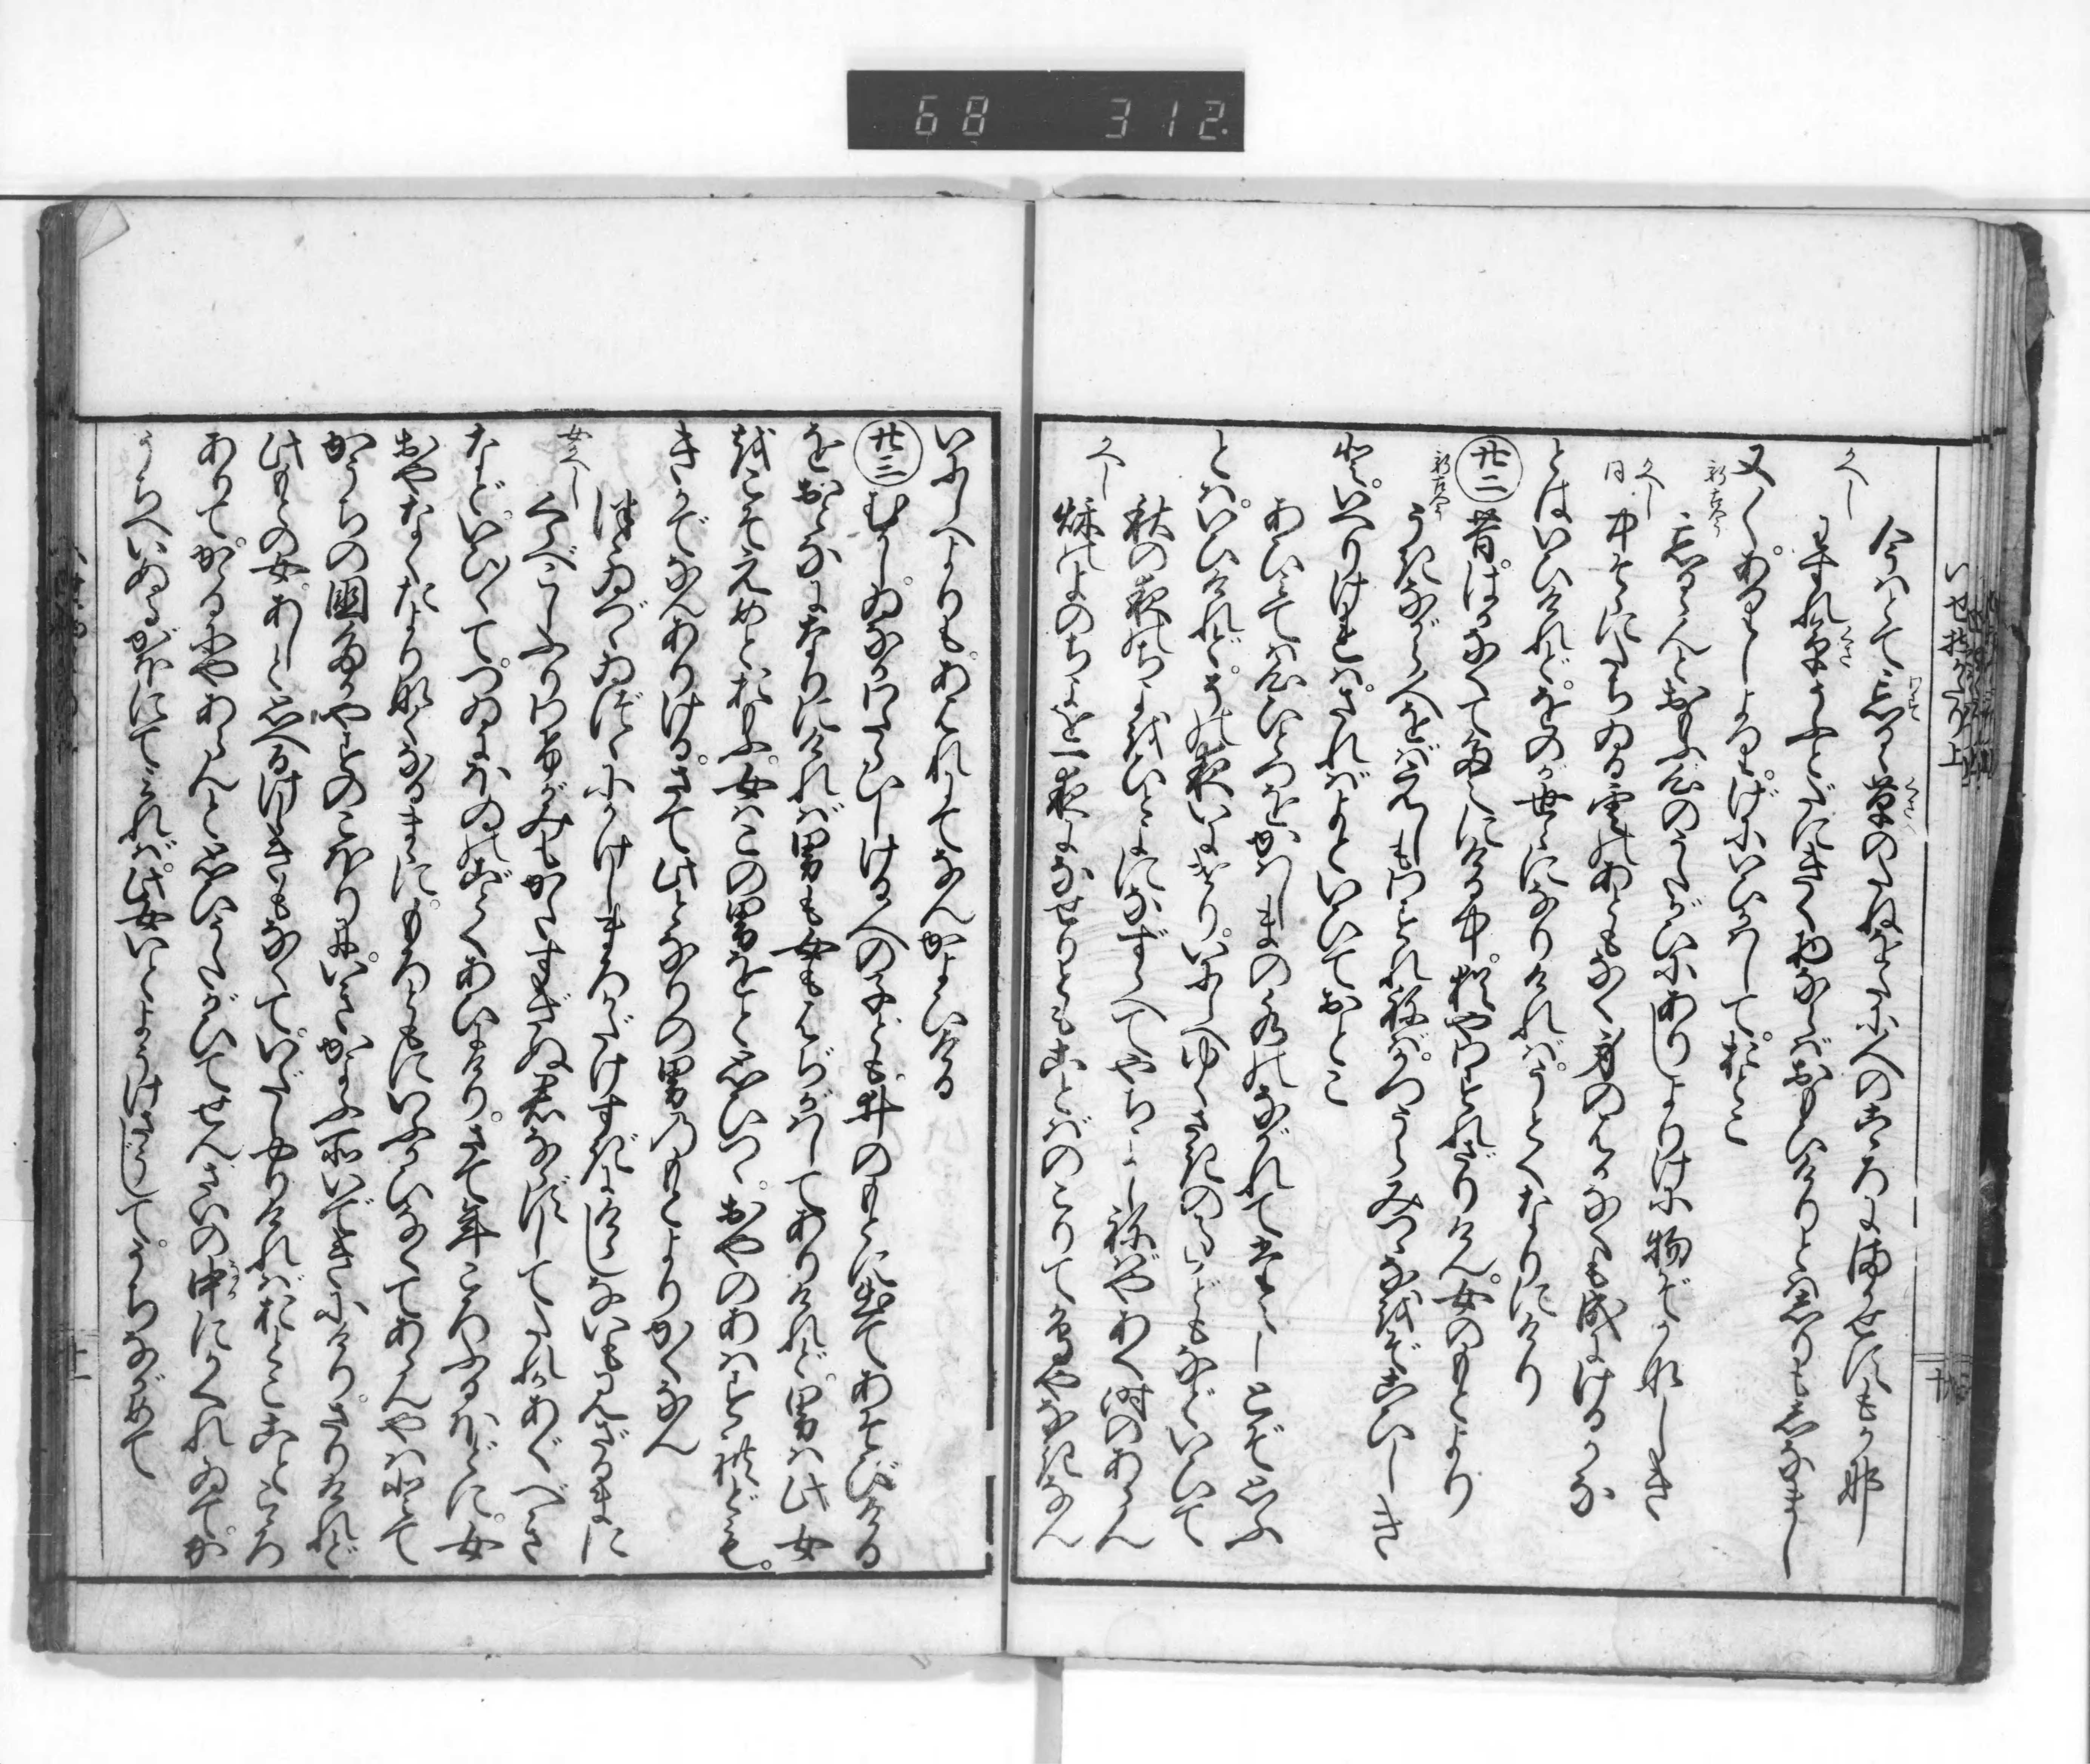 68 312
いせ物がたり上
今はとて忘るゝ草のたねをだに人のこゝろにまかせずもが那
返し
わすれ草うふとだにきく物ならばおもひけりとは思りもしなまし
又〳〵ありしよりげにいひかはしておとこ
新古今
忘るらんと思ふ心のうたがひにありしよりけに物ぞかなしき
返し
同 中空にたちゐる雲のあともなく身のはかなくも成にけるかな
とはいひけれどをのが世ゝになりければうとくなりにけり
廿二 昔はかなくてたえにける中猶やわすれざりけん女のもとより
新古今
うきながら人をばえしもわすれねばかつうらみつゝ猶ぞ恋しき
といへりければさればよといひておとこ
あひ見ては心ひとつをかはしまの水のながれてたえじとぞ思ふ
とはいひけれどその夜いにけりいにしへゆくさきのことどもなどいひて
秋の夜のちよを一よになずらへてやちよしねばやあく時のあらん
返し
秋のよのちよを一夜になせりともことばのこりて鳥やなきなん
いにしへよりもあはれにてなんかよひける
廿三 むかしゐなかわたらひしける人の子ども井のもとに出てあそびける
をおとなになりにければ男も女もはぢかはしてありけれど男は此女
をこそえめとおもふ女はこの男をと思ひつゝおやのあはすれども
きかでなんありけるさて此となりの男のもとよりかくなん
筒ゐづゝゐづゝにかけしまろがたけすぎにけらしないも見ざるまに
女返し
くらべこしふりわけがみもかたすぎぬ君ならずしてたれかあぐべき
などいひ〳〵てつゐにほゐのごとくあひにけりさて年ごろふるほどに女
おやなくたより那くなるまゝにもろともにいふかひなくてあらんやはとて
かうちの国たかやすのこほりにいきかよふ所いできにけりさりけれど
此もとの女あしと思へるけしきもなくていだしやりければおとここと心
ありてかゝるにやあらんと思ひうたがひてせんざいの中にかくれゐてか
うちへいぬるかほにて見れば此女いとようけさうじてうちながめて